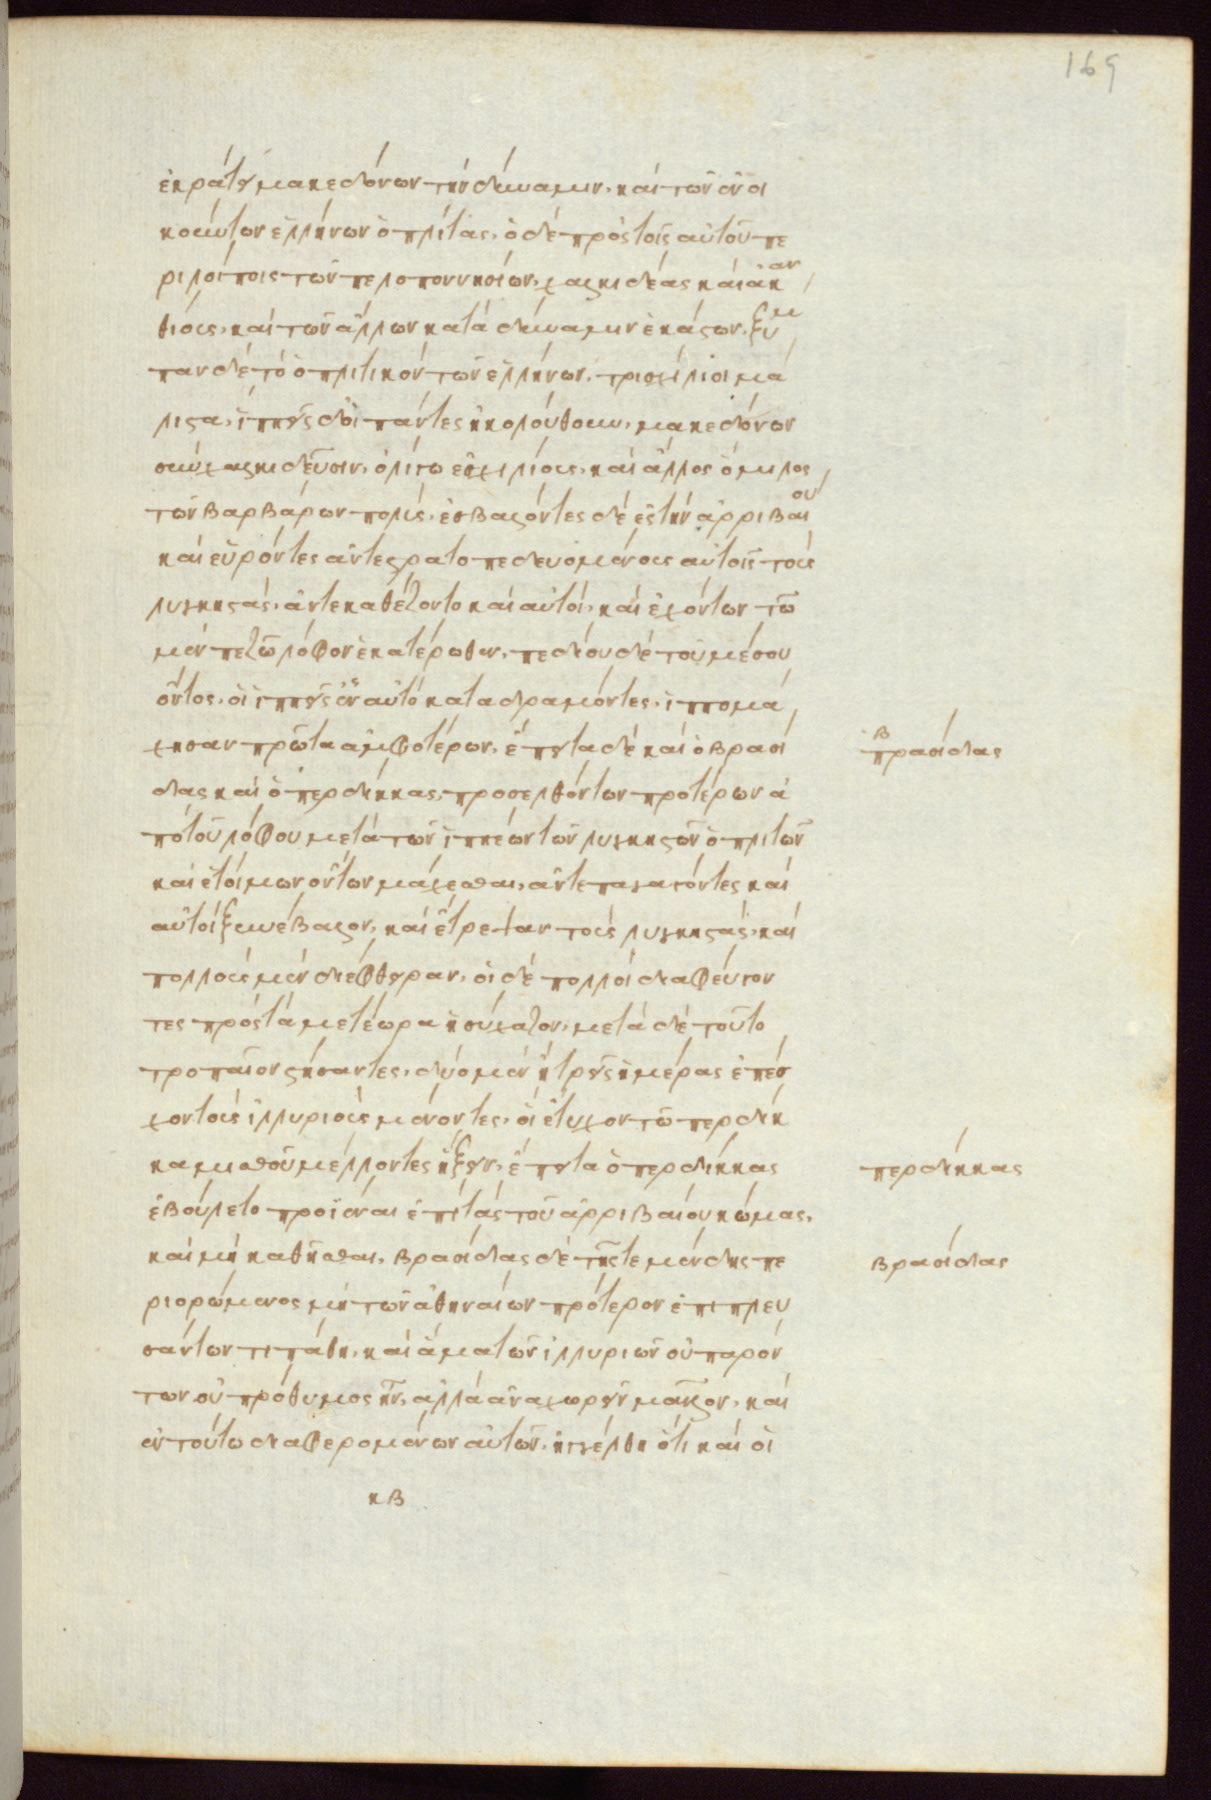 169
ἐκράτει μακεδόνων τὴν δύναμιν, καὶ τῶν ἐνοι
κούντων ἑλλήνων ὁπλίτας, ὁ δὲ πρὸς τοῖς αὐτοῦ πε
ριλοίποις τῶν πελοποννησίων, χαλκιδέας καὶ ἀκαν
θίους, καὶ τῶν ἄλλων κατὰ δύναμιν ἑκάστων. ξύμ
παν δὲ τὸ ὁπλιτικὸν τῶν ἑλλήνων, τρισχίλιοι μά
λιστα, ἱππεῖς δ' οἱ πάντες ἠκολούθουν, μακεδόνων
σὺν χαλκιδεῦσιν, ὀλίγω ἐς χιλίους, καὶ ἄλλος ὅμιλος
τῶν βαρβάρων πολύς, ἐσβαλόντες δὲ ἐς τὴν ἀρριβαίου
καὶ εὑρόντες ἀντεστρατοπεδευομένους αὐτοῖς τοὺς
λυγκηστάς, ἀντεκαθέζοντο καὶ αὐτοί, καὶ ἐχόντων τῶ
μὲν πεζῶ λόφον ἑκατέρωθεν, πεδίου δὲ τοῦ μέσου
ὄντος, οἱ ἱππεῖς ἐν αὐτὸ καταδραμόντες, ἱππομά
χησαν πρῶτα ἀμφοτέρων, ἔπειτα δὲ καὶ ὁ βρασί
β
πρασίδας
δας καὶ ὁ περδίκκας, προσελθόντων προτέρων ἀ
πὸ τοῦ λόφου μετὰ τῶν ἱππέων τῶν λυγκηστῶν ὁπλιτῶν
καὶ ἑτοίμων ὄντων μάχεσθαι, ἀντεπαγαγόντες καὶ
αὐτοὶ ξυνέβαλον, καὶ ἔτρεψαν τοὺς λυγκηστάς, καὶ
πολλοὺς μὲν διέφθειραν, οἱ δὲ πολλοὶ διαφεύγον
τες πρὸς τὰ μετέωρα ἡσύχαζον, μετὰ δὲ τοῦτο
τροπαῖον στήσαντες, δύο μὲν ἢ τρεῖς ἡμέρας ἐπέσ
χον τοὺς ἰλλυριοὺς μένοντες, οἳ ἔτυχον τῶ περδίκ
κα μισθοῦ μέλλοντες ἥξειν, ἔπειτα ὁ περδίκκας
περδίκκας
ἐβούλετο προϊέναι ἐπὶ τὰς τοῦ ἀρριβαίου κώμας,
καὶ μὴ καθῆσθαι, βρασίδας δὲ τῆς τε μένδης πε
βρασίδας
ριορώμενος μὴ τῶν ἀθηναίων πρότερον ἐπιπλευ
σάντων τι πάθη, καὶ ἅμα τῶν ἰλλυριῶν οὐ παρόν
των οὐ πρόθυμος ἦν, ἀλλὰ ἀναχωρεῖν μᾶλλον, καὶ
ἐν τούτω διαφερομένων αὐτῶν, ἠγγέλθη ὅτι καὶ οἱ
κβ